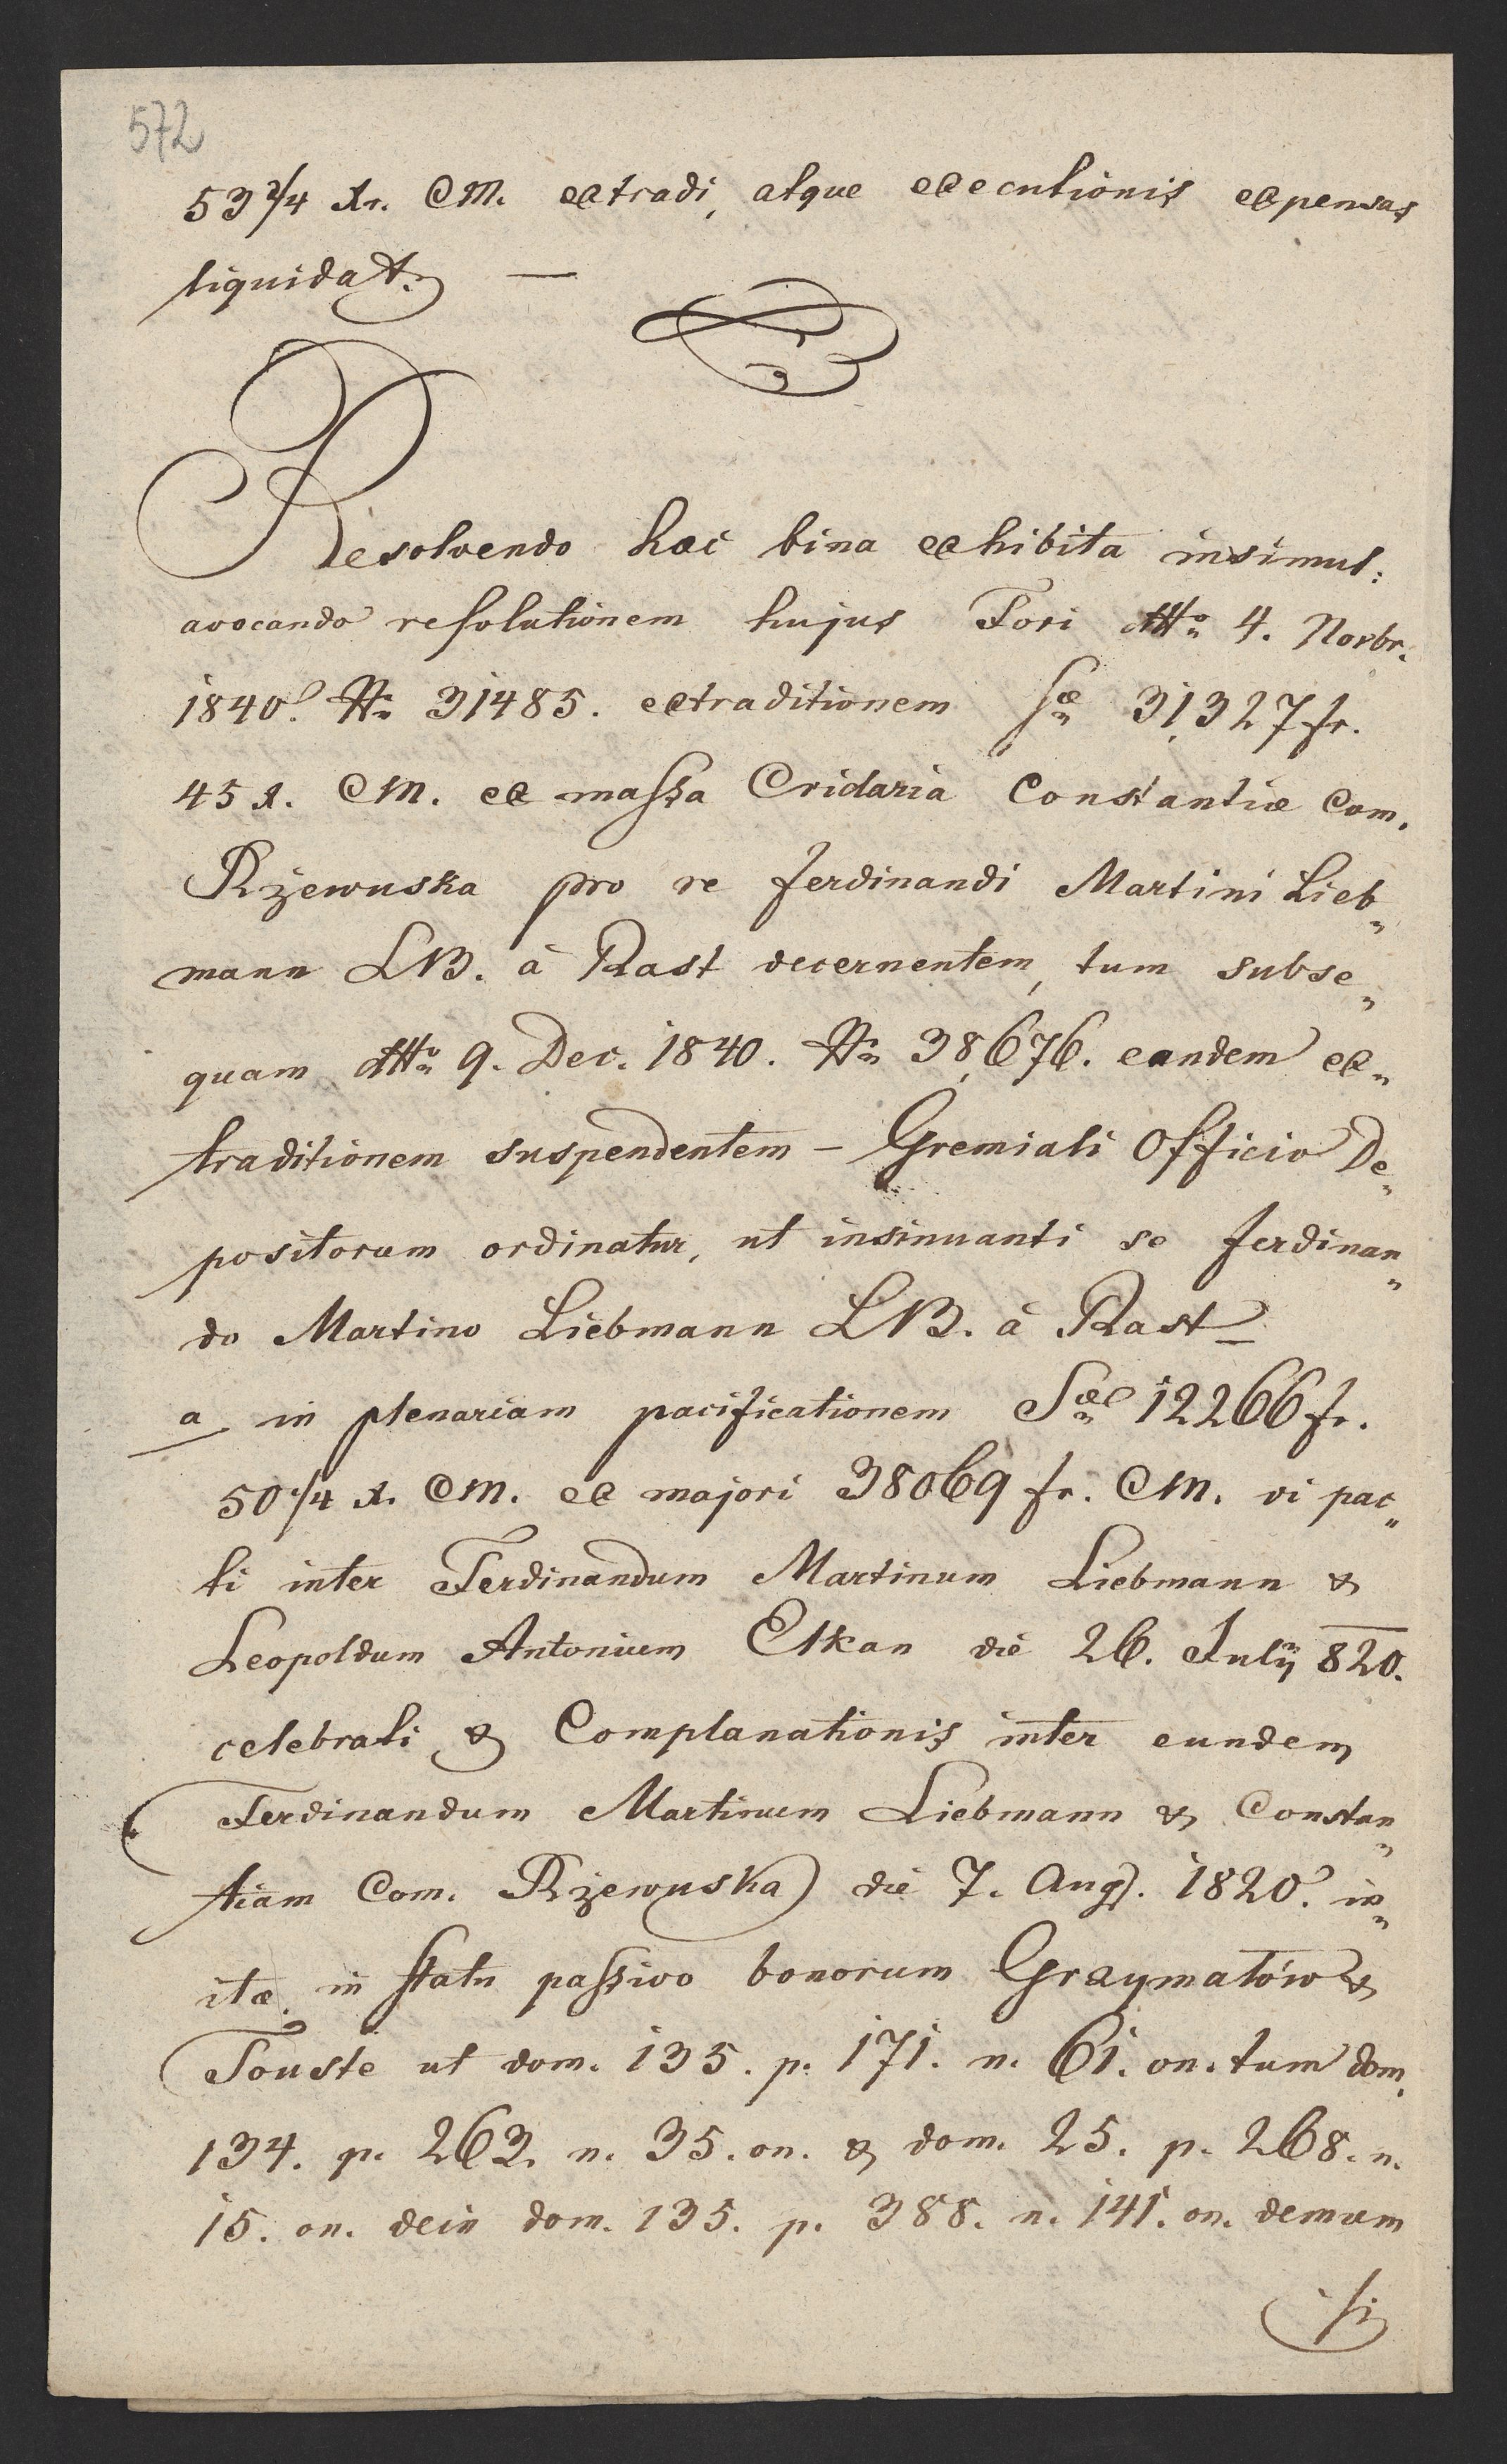 572
53 2/4 xr. CM. extradi, atque executionis expensas
liquidat. —
Resolvendo haec bina exhibita insimul:
avocando resolutionem hujus Fori ddto 4. Novbr.
1840. N. 31485. extraditionem Sae 31,327 fr.
45 x. CM. ex massa Cridaria Constantiæ Com.
Rzewuska pro re Ferdinandi Martini Lieb„
mann LB. à Rast decernentem, tum subse„
quam ddto 9. Dec. 1840. N. 38,676. eandem ex„
traditionem suspendentem – Gremiali Officio De„
positorum ordinatur, ut insinuanti se Ferdinan„
do Martino Liebmann LB. à Rast
a/ in plenariam pacificationem Sae 12266 fr.
50 1/4 x. CM. ex majori 38069 fr. CM. vi pac„
ti inter Ferdinandum Martinum Liebmann &
Leopoldum Antonium Elkan die 26. July 820.
celebrati & Complanationis inter eundem
Ferdinandum Martinum Liebmann & Constan„
tiam Com. Rzewuska die 7. Aug. 1820. in„
itæ, in statu passivo bonorum Graymatów &
Touste ut dom. 135. p. 171. n. 61. on. tum dom.
134. p. 263. n. 35. on. & dom. 25. p. 268. n.
15. on. dein dom. 135. p. 388. n. 141. on. demum